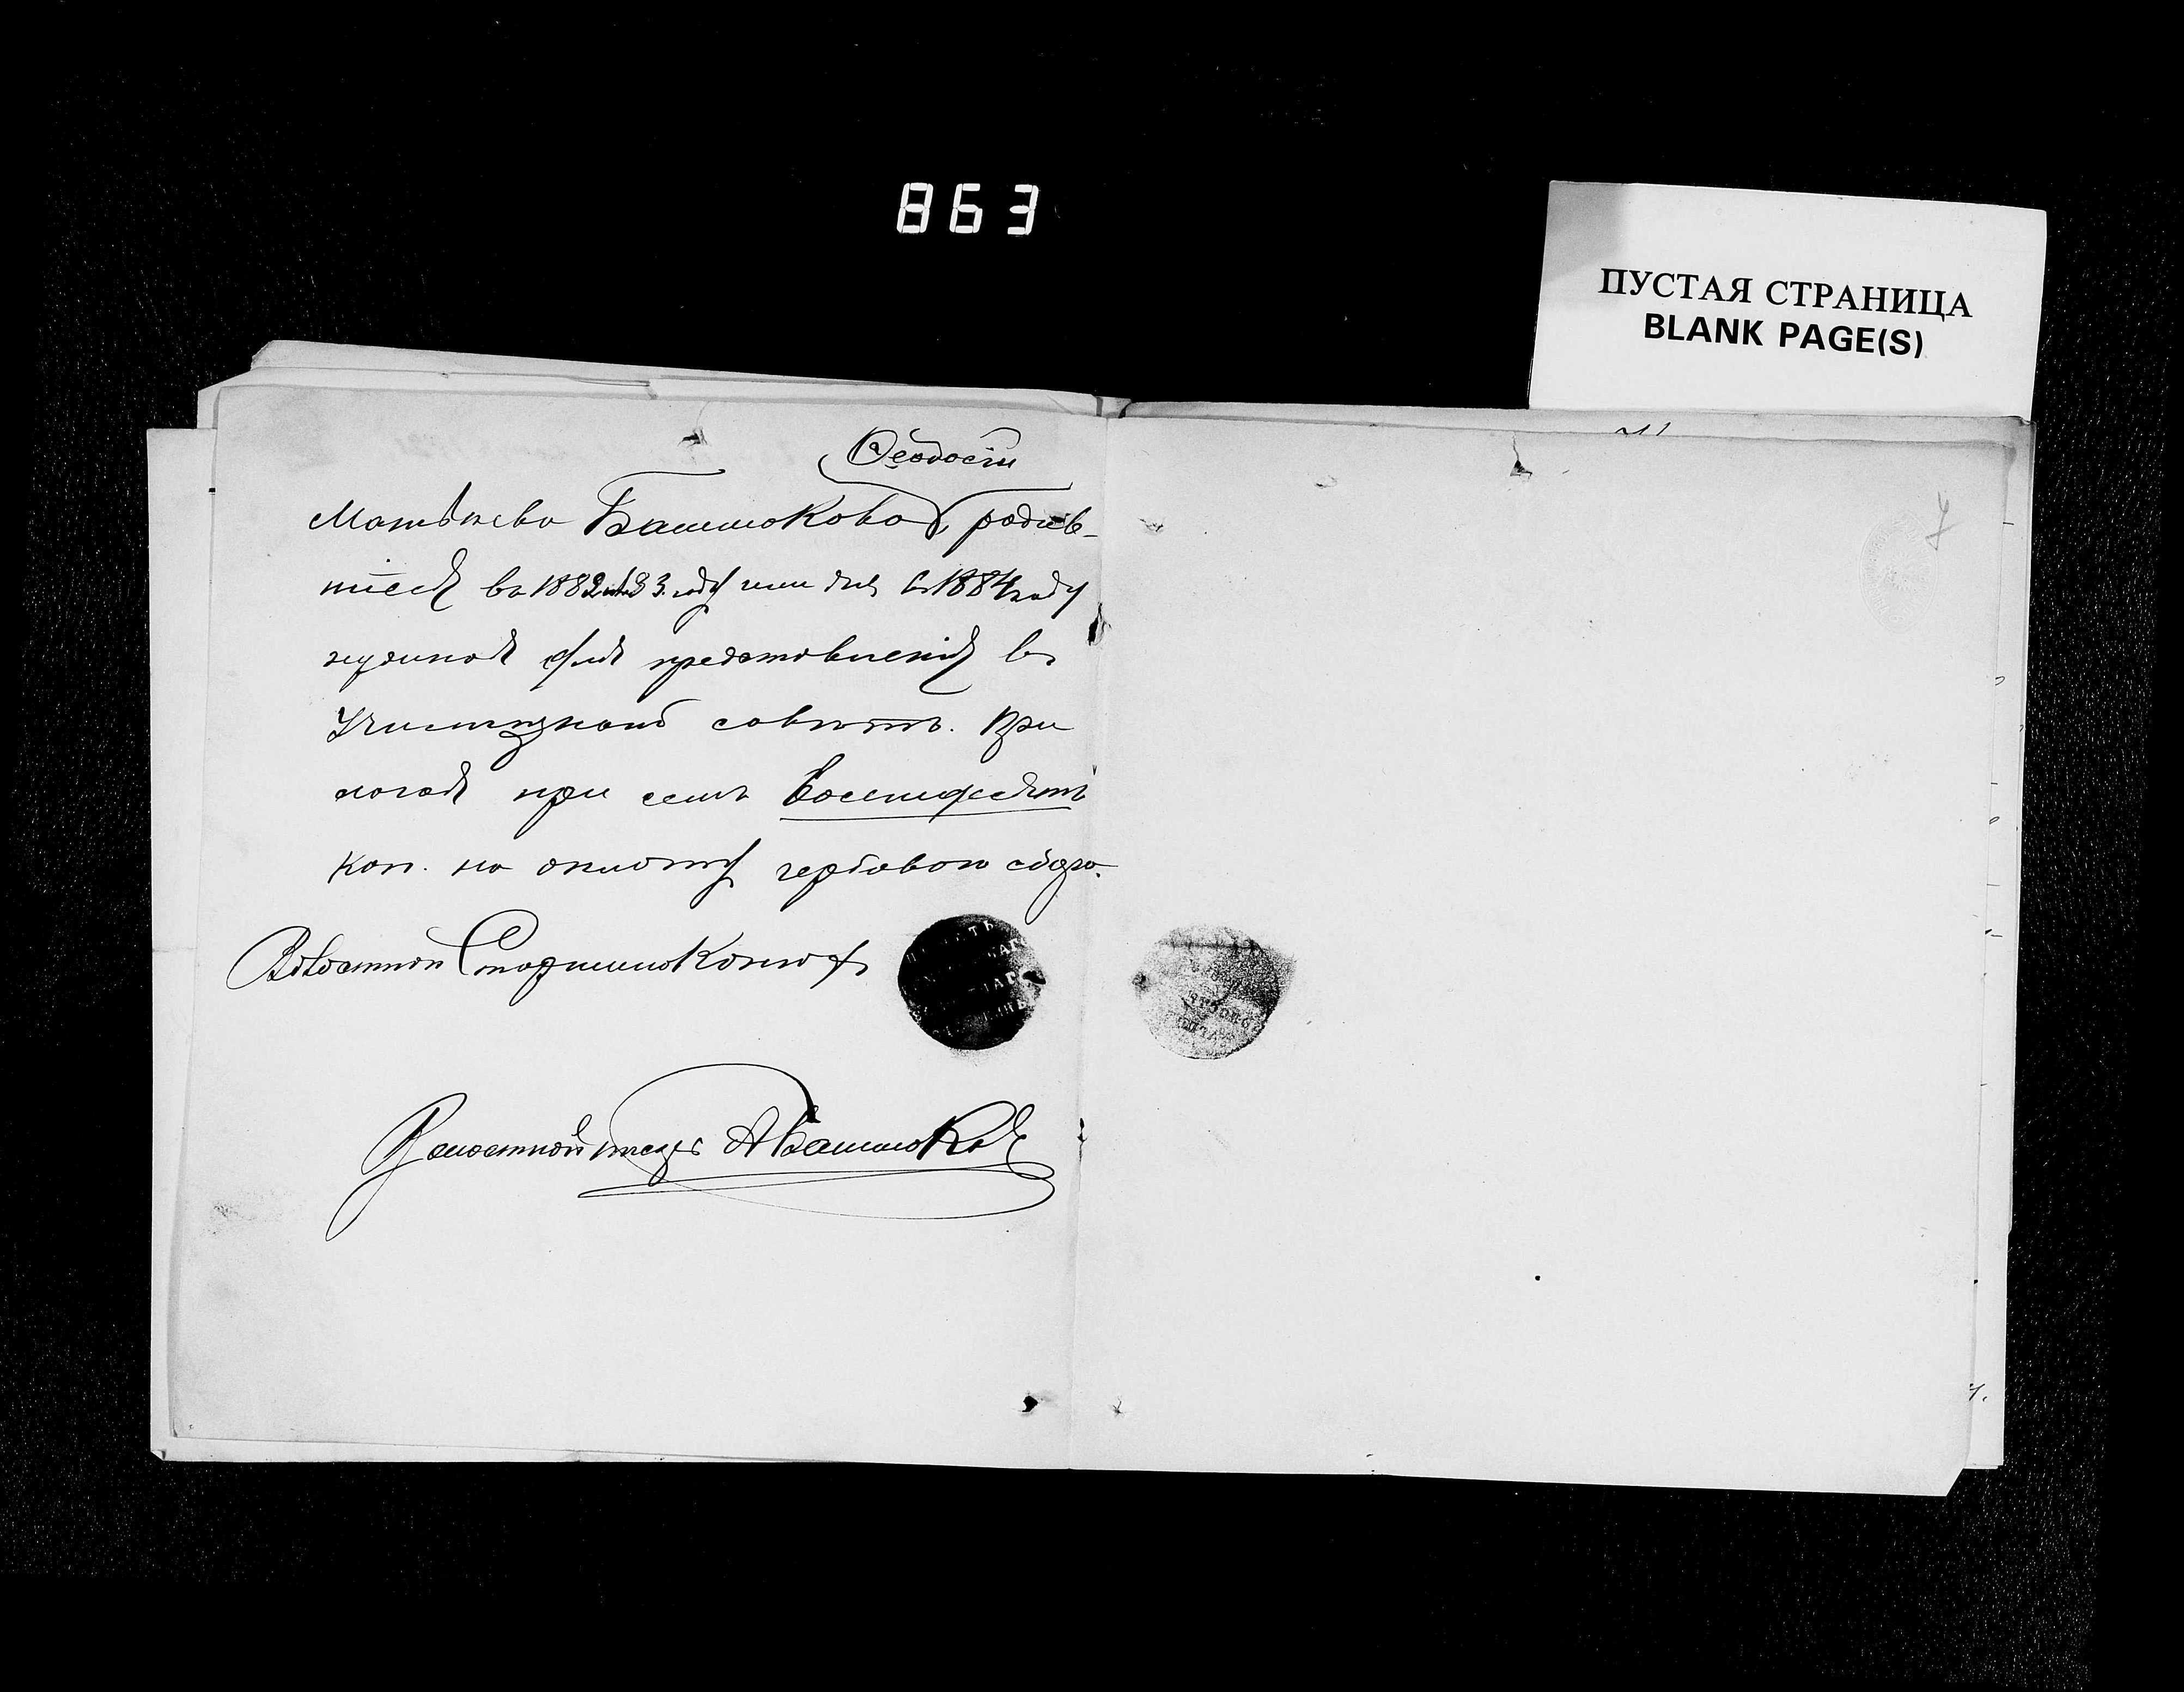 863
ПУСТАЯ СТРАНИЦА
BLANK PAGE(S)
Ѳеодосіи
Матвѣева Башмакова, родив-
шіеся въ 1882 или 83 году или же въ 1884 году
нужной для представленія въ
Училищный совѣтъ. При
лагая при семъ восемдесятъ
коп. на оплату гербоваго сбора.
Волостной Старшина
Волостной писарь А Башмаковъ